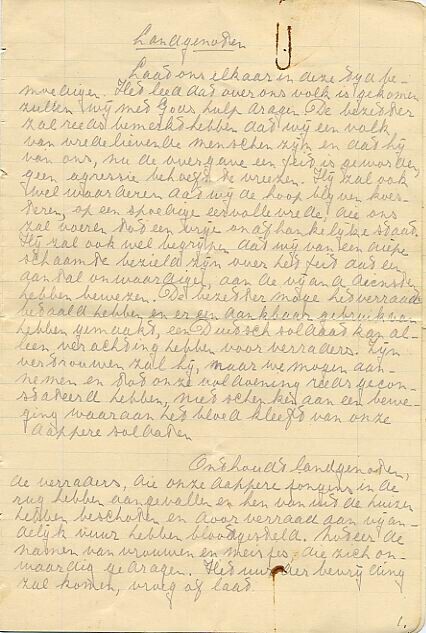 Landgenoten
Laat ons elkaar in deze tijd be-
moedigen. Het leed dat over ons volk is gekomen
zullen wij met Gods hulp dragen. De bezetter
zal reeds bemerkt hebben dat wij een volk
van vredelievende menschen zijn en dat hij
van ons, nu de overgave een feit is geworden,
geen agressie behoeft te vreezen. Hij zal ook
wel waarderen dat wij de hoop blyven koes-
teren, op een spoedige eervolle vrede, die ons
zal voeren tot een vrye onafhankelyke staat.
Hij zal ook wel begrypen dat wij van een diepe
schaamte bezield zijn over het feit dat een
aantal onwaardigen, aan de vijand diensten
hebben bewezen. De bezetter moge het verraad
betaald hebben en er een dankbaar gebruik van
hebben gemaakt, een Duitsch soldaat kan al-
leen verachting hebben voor verraders. Zijn
vertrouwen zal hij, naar we mogen aan-
nemen en tot onze voldoening reeds gecon-
stateerd hebben, niet schenken aan een bewe-
ging waaraan het bloed kleeft van onze
dappere soldaten
Onthoudt landgenoten,
de verraders, die onze dappere jongens in de
rug hebben aangevallen en hen van uit de huizen
hebben beschoten en door verraad aan vijan-
delyk vuur hebben blootgesteld. Noteer de
namen van vrouwen en meisjes die zich on-
waardig gedragen. Het uur der bevrijding
zal komen, vroeg of laat.
1.